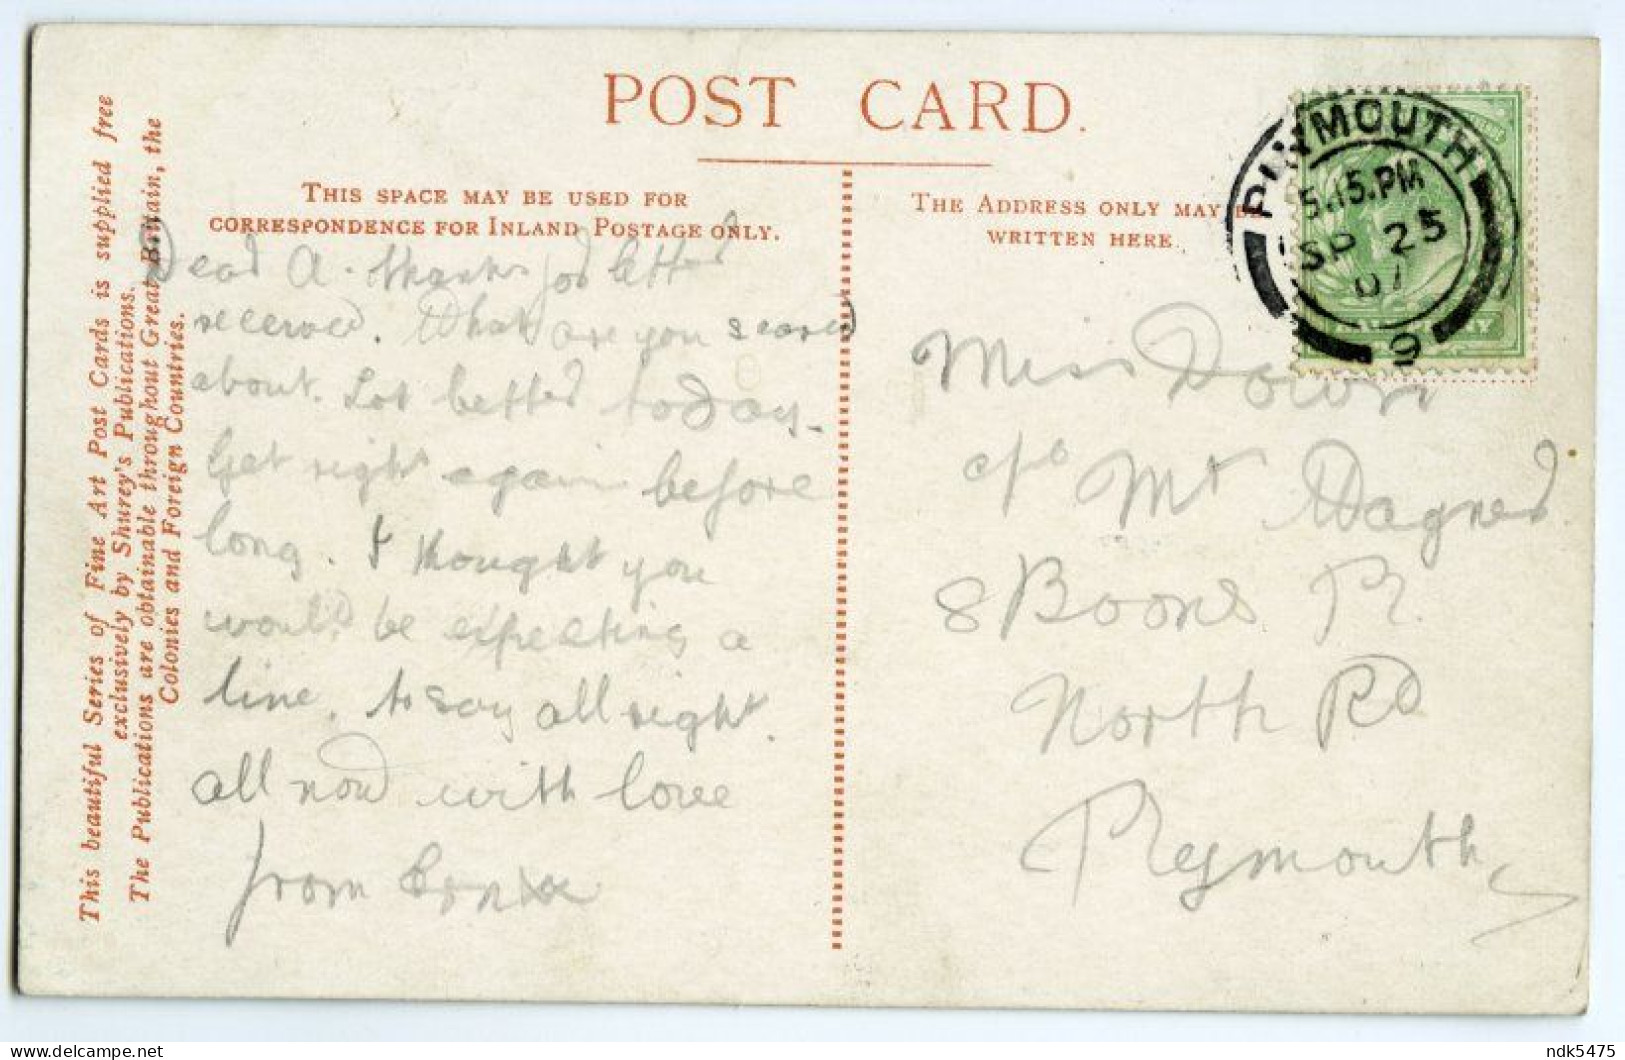 POST CARD.
THIS SPACE MAY BE USED FOR
CORRESPONDENCE FOR INLAND POSTAGE ONLY.
THE ADDRESS ONLY MAY BE
WRITTEN HERE.
This beautiful Series of Fine Art Post Cards is supplied free
exclusively by Shurey's Publications.
The Publications are obtainable throughout Great Britain, the
Colonies and Foreign Countries.
PLYMOUTH
5.15.PM
SP 25
07
9
Dear A. thanks for letter
received. What are you scared
about. Lot better today.
Get right again before
long. I thought you
would be expecting a
line. to say all right.
all now with love
from
Miss Down
c/o Mr Wagner
8 Boons Pl.
North Rd
Plymouth
ndk5475